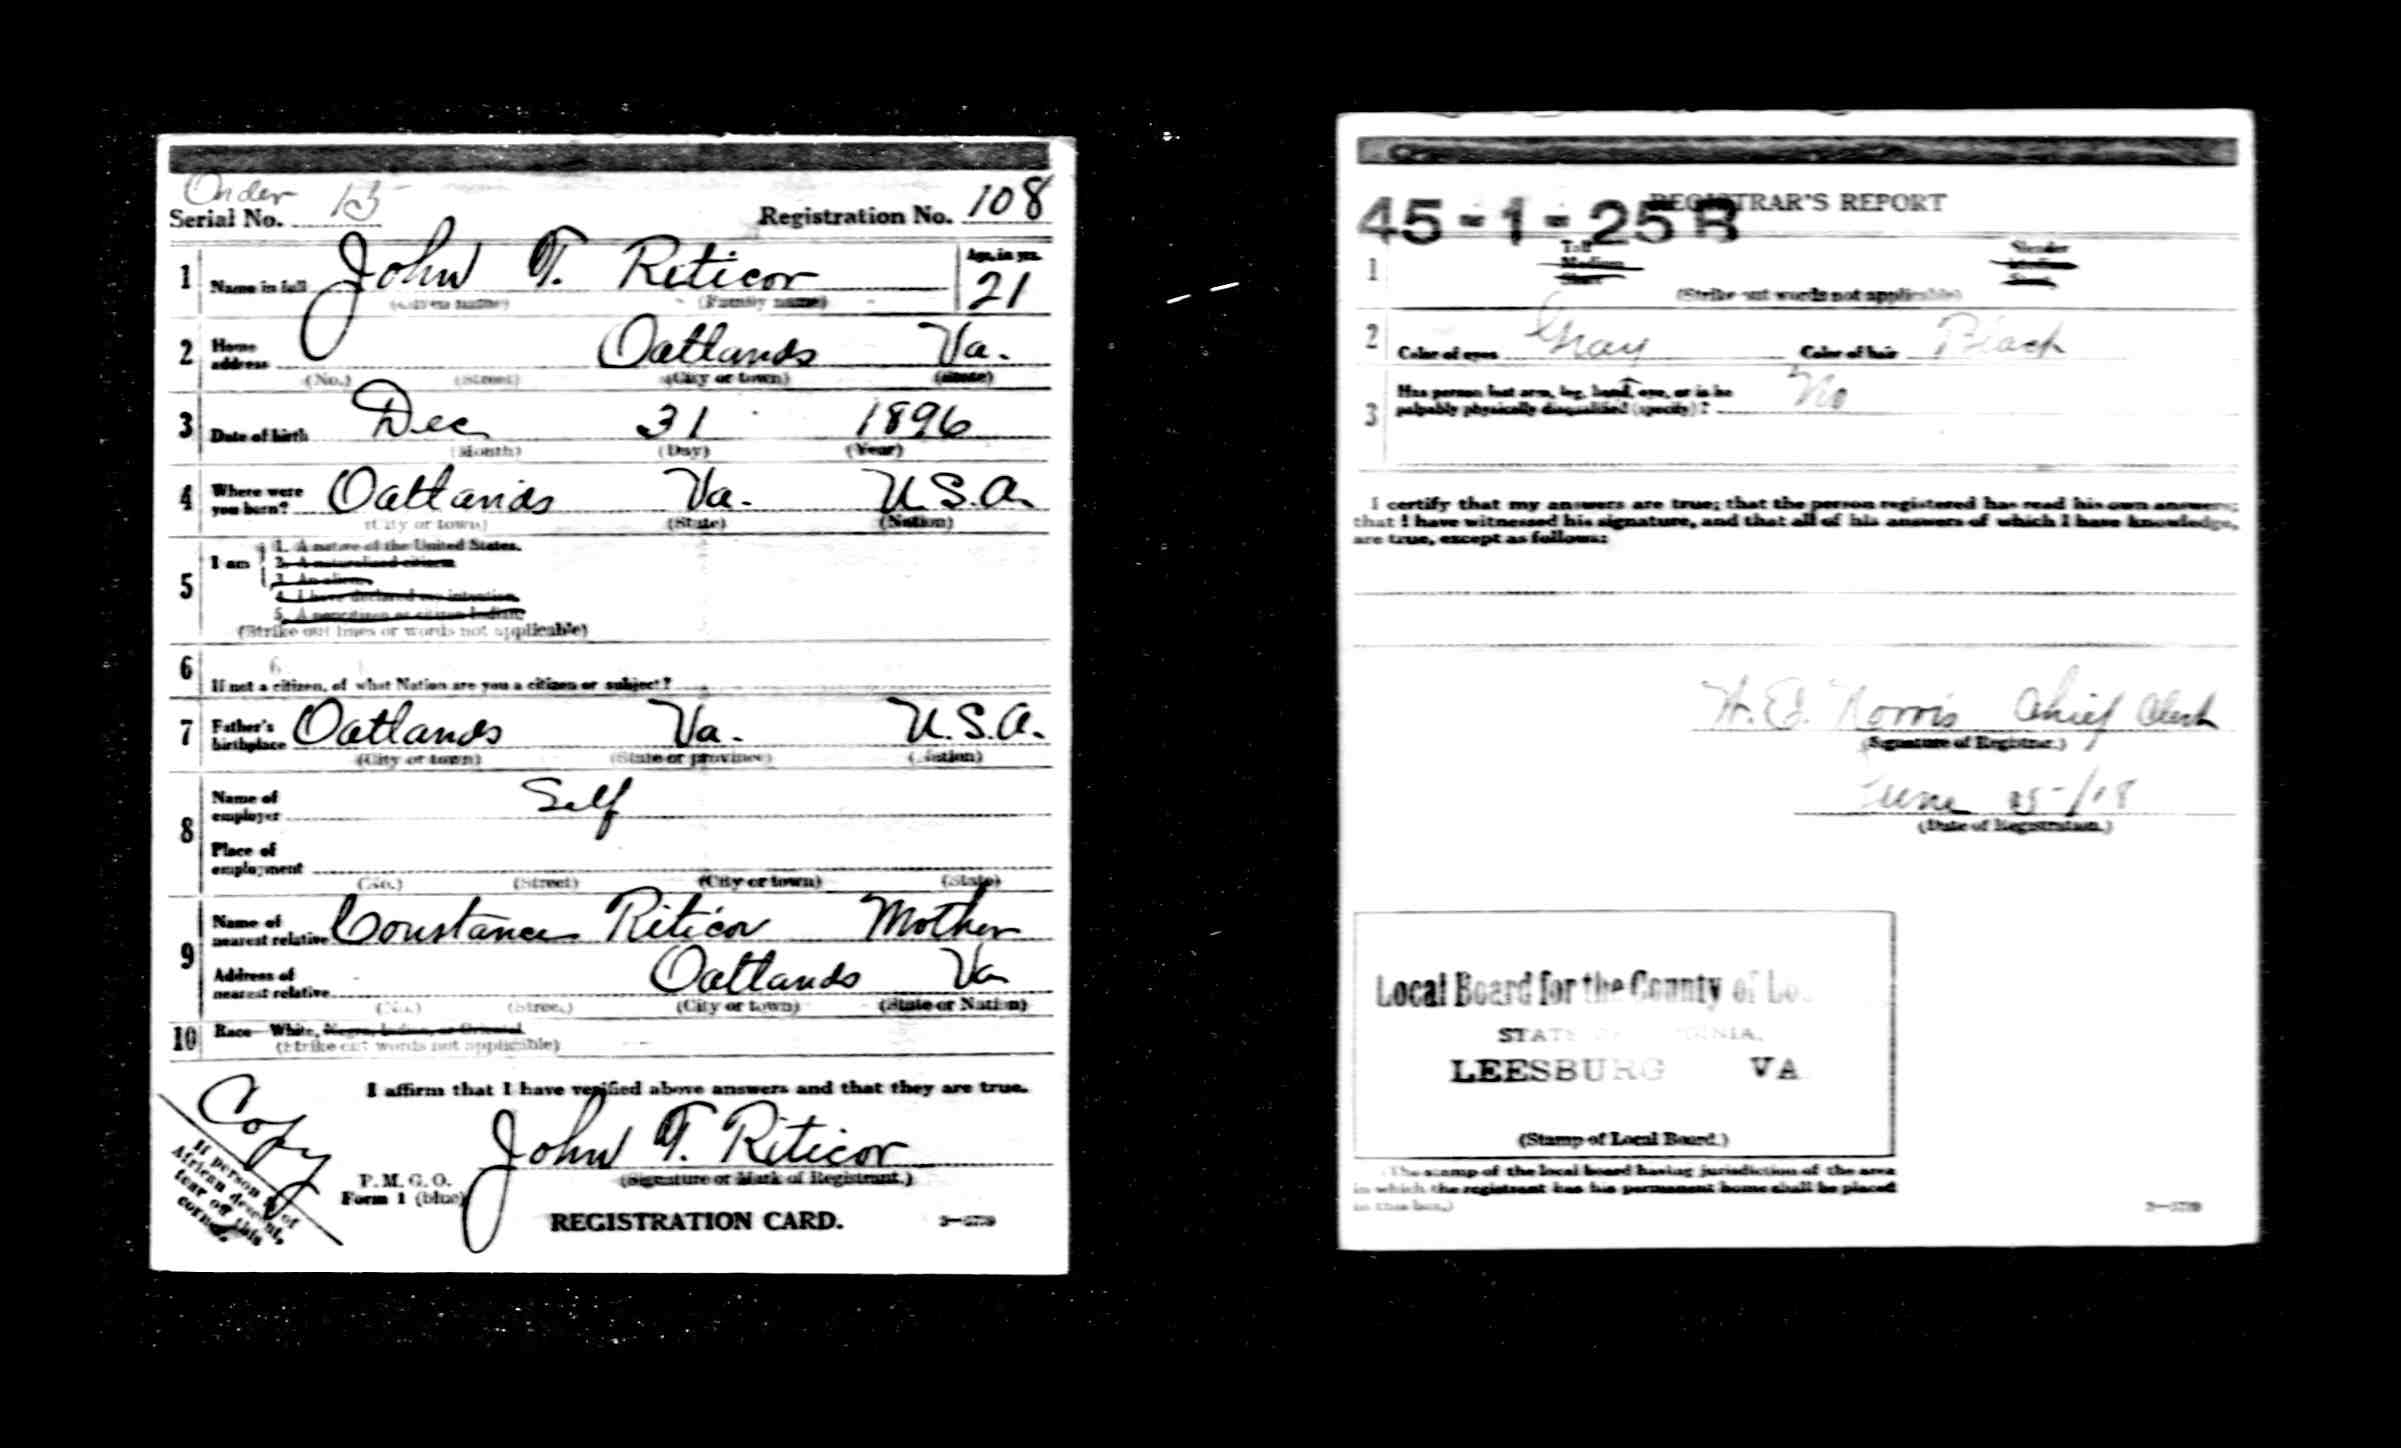 Order
Serial No. 15
Registration No. 108
1 Name in full John T. Riticor
(Given name) (Family name)
Age, in yrs. 21
2 Home address Oatlands Va.
(No.) (Street) (City or town) (State)
3 Date of birth Dec 31 1896
(Month) (Day) (Year)
4 Where were you born? Oatlands Va. U.S.A.
(City or town) (State) (Nation)
5 I am
1. A native of the United States.
2. A naturalized citizen
3. An alien.
4. I have declared my intention.
5. A noncitizen or citizen Indian.
(Strike out lines or words not applicable)
6 If not a citizen, of what Nation are you a citizen or subject?
7 Father's birthplace Oatlands Va. U.S.A.
(City or town) (State or province) (Nation)
8 Name of employer Self
Place of employment
(No.) (Street) (City or town) (State)
9 Name of nearest relative Constance Riticor Mother
Address of nearest relative Oatlands Va
(No.) (Street) (City or town) (State or Nation)
10 Race—White, Negro, Indian, or Oriental.
(Strike out words not applicable)
I affirm that I have verified above answers and that they are true.
Copy
John T. Riticor
(Signature or Mark of Registrant.)
If person is of
African descent,
tear off this
corner.
P. M. G. O.
Form 1 (blue)
REGISTRATION CARD.
REGISTRAR'S REPORT
45-1-25 R
1 Tall Slender
Medium Medium
Short Stout
(Strike out words not applicable)
2 Color of eyes Gray Color of hair Black
3 Has person lost arm, leg, hand, eye, or is he
palpably physically disqualified (specify)? No
I certify that my answers are true; that the person registered has read his own answers;
that I have witnessed his signature, and that all of his answers of which I have knowledge,
are true, except as follows:
Norris Chief Clerk
(Signature of Registrar.)
June /18
(Date of Registration.)
Local Board for the County of
STATE OF VIRGINIA,
LEESBURG VA.
(Stamp of Local Board.)
(The stamp of the local board having jurisdiction of the area
in which the registrant has his permanent home shall be placed
in this box.)